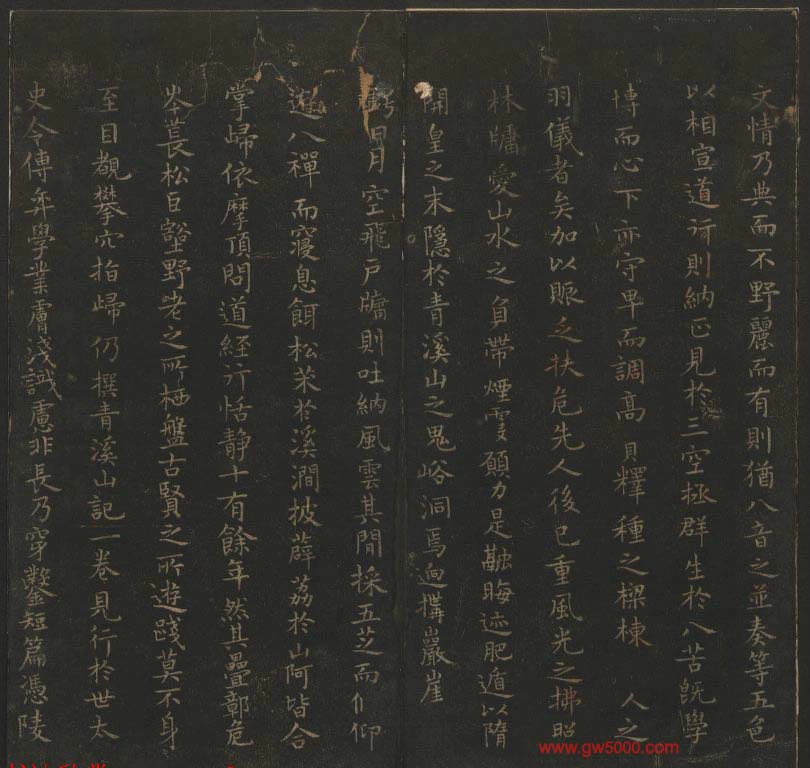 文情乃典而不野麗而有則猶八音之並奏等五色
以相宣道行則納正見於三空拯群生於八苦既學
博而心下亦守卑而調高貝釋種之樑棟 人之
羽儀者矣加以賑乏扶危先人後己重風光之拂照
林牖愛山水之負帶煙霞願力是融晦迹肥遁以隋
開皇之末隱於青溪山之鬼峪洞焉迥構巖崖
虧日月空飛戶牖則吐納風雲其間採五芝而偃仰
遊八禪而寢息餌松茱於溪澗披薜荔於山阿皆合
掌歸依摩頂問道經行恬靜十有餘年然其疊彰危
岑萇松巨壑野老之所栖盤古賢之所遊踐莫不身
至目覩攀穴指歸仍撰青溪山記一卷見行於世太
史令傅弈學業膚淺識慮非長乃穿鑿短篇憑陵
www.gw5000.com